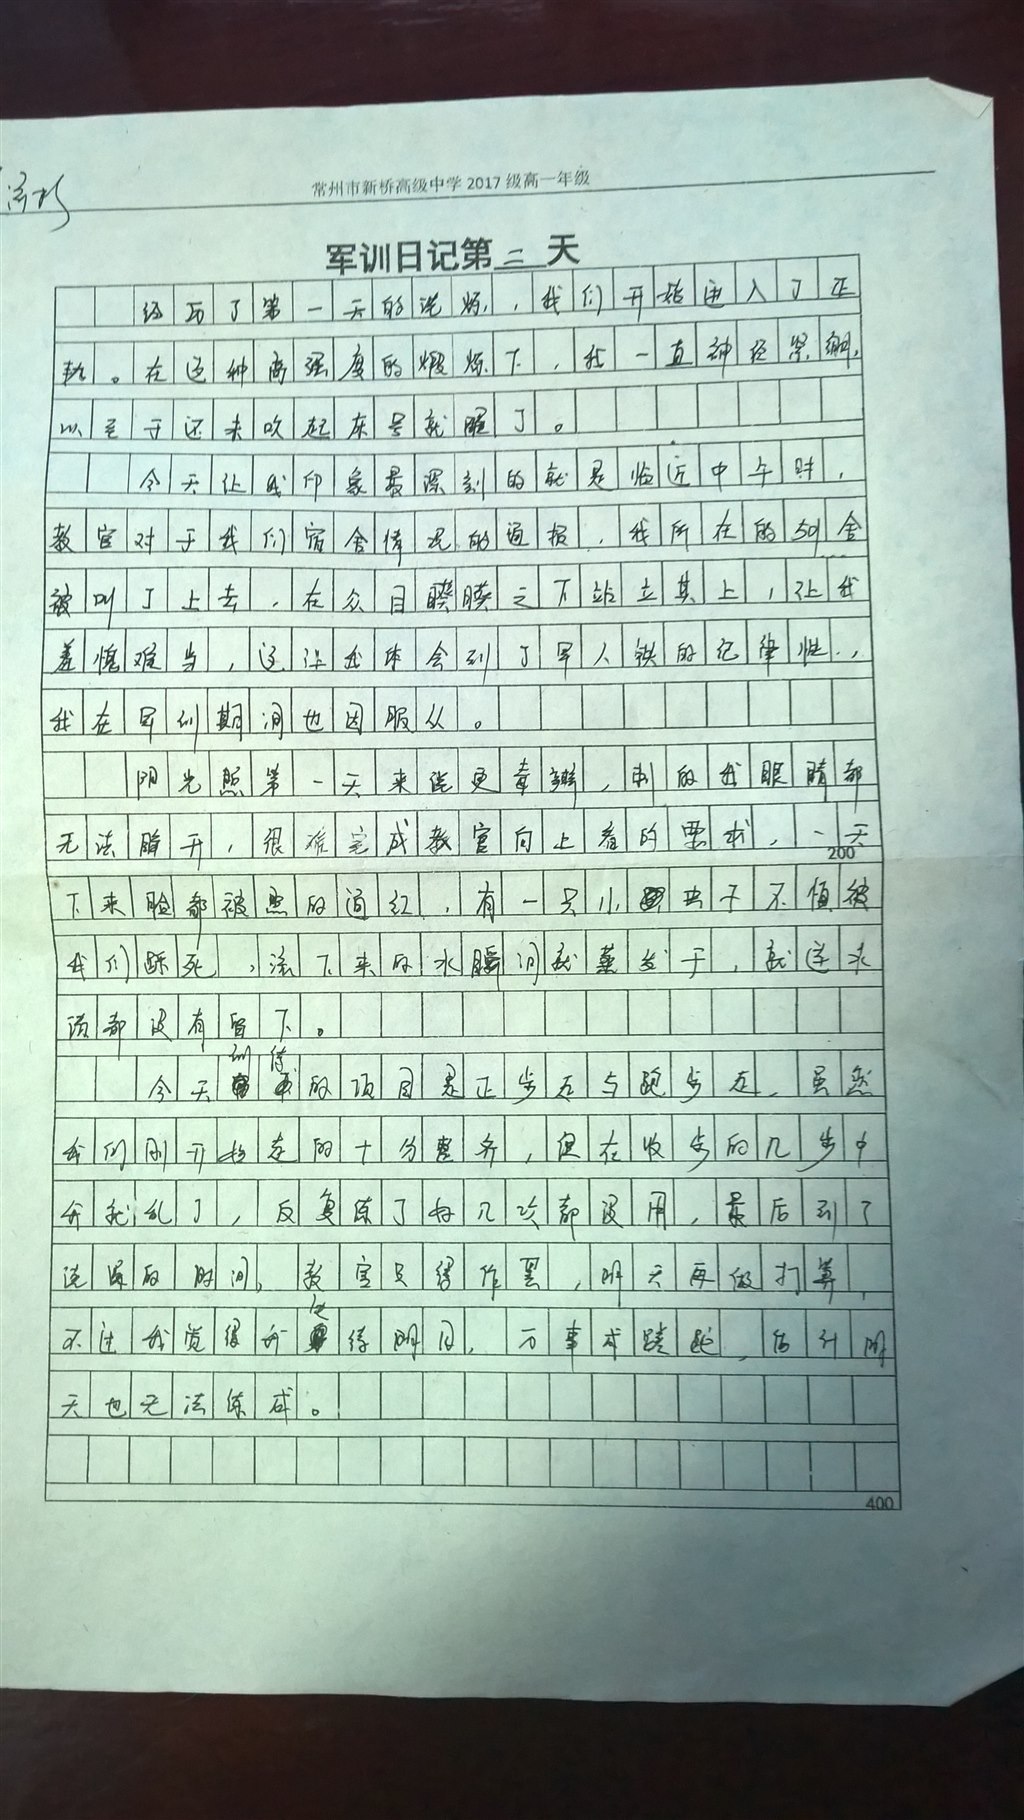 常州市新桥高级中学2017级高一年级
军训日记第二天
经历了第一天的洗炼,我们开始进入了正
轨。在这种高强度的煅炼下,我一直神经紧绷,
以至于还未吹起床号就醒了。
今天让我印象最深刻的就是临近中午时,
教官对于我们宿舍情况的通报,我所在的509舍
被叫了上去,在众目睽睽之下站立其上,让我
羞愧难当,这让我体会到了军人铁的纪律性,
我在军训期间也因服从。
阳光照第一天来说更毒辣,刺的我眼睛都
无法睁开,很难完成教官向上看的要求,一天
200
下来脸都被照的通红,有一只小虫子不慎被
我们踩死,流下来的水瞬间就蒸发于,就连水
渍都没有留下。
今天训练的项目是正步走与跑步走,虽然
我们刚开始走的十分整齐,但在收步的几步中
年就乱了,反复练了好几次都没用,最后到了
的时间,教官只得作罢,明天再做打算,
不过我觉得待明日,万事成蹉跎,估计明
天也无法练成。
400